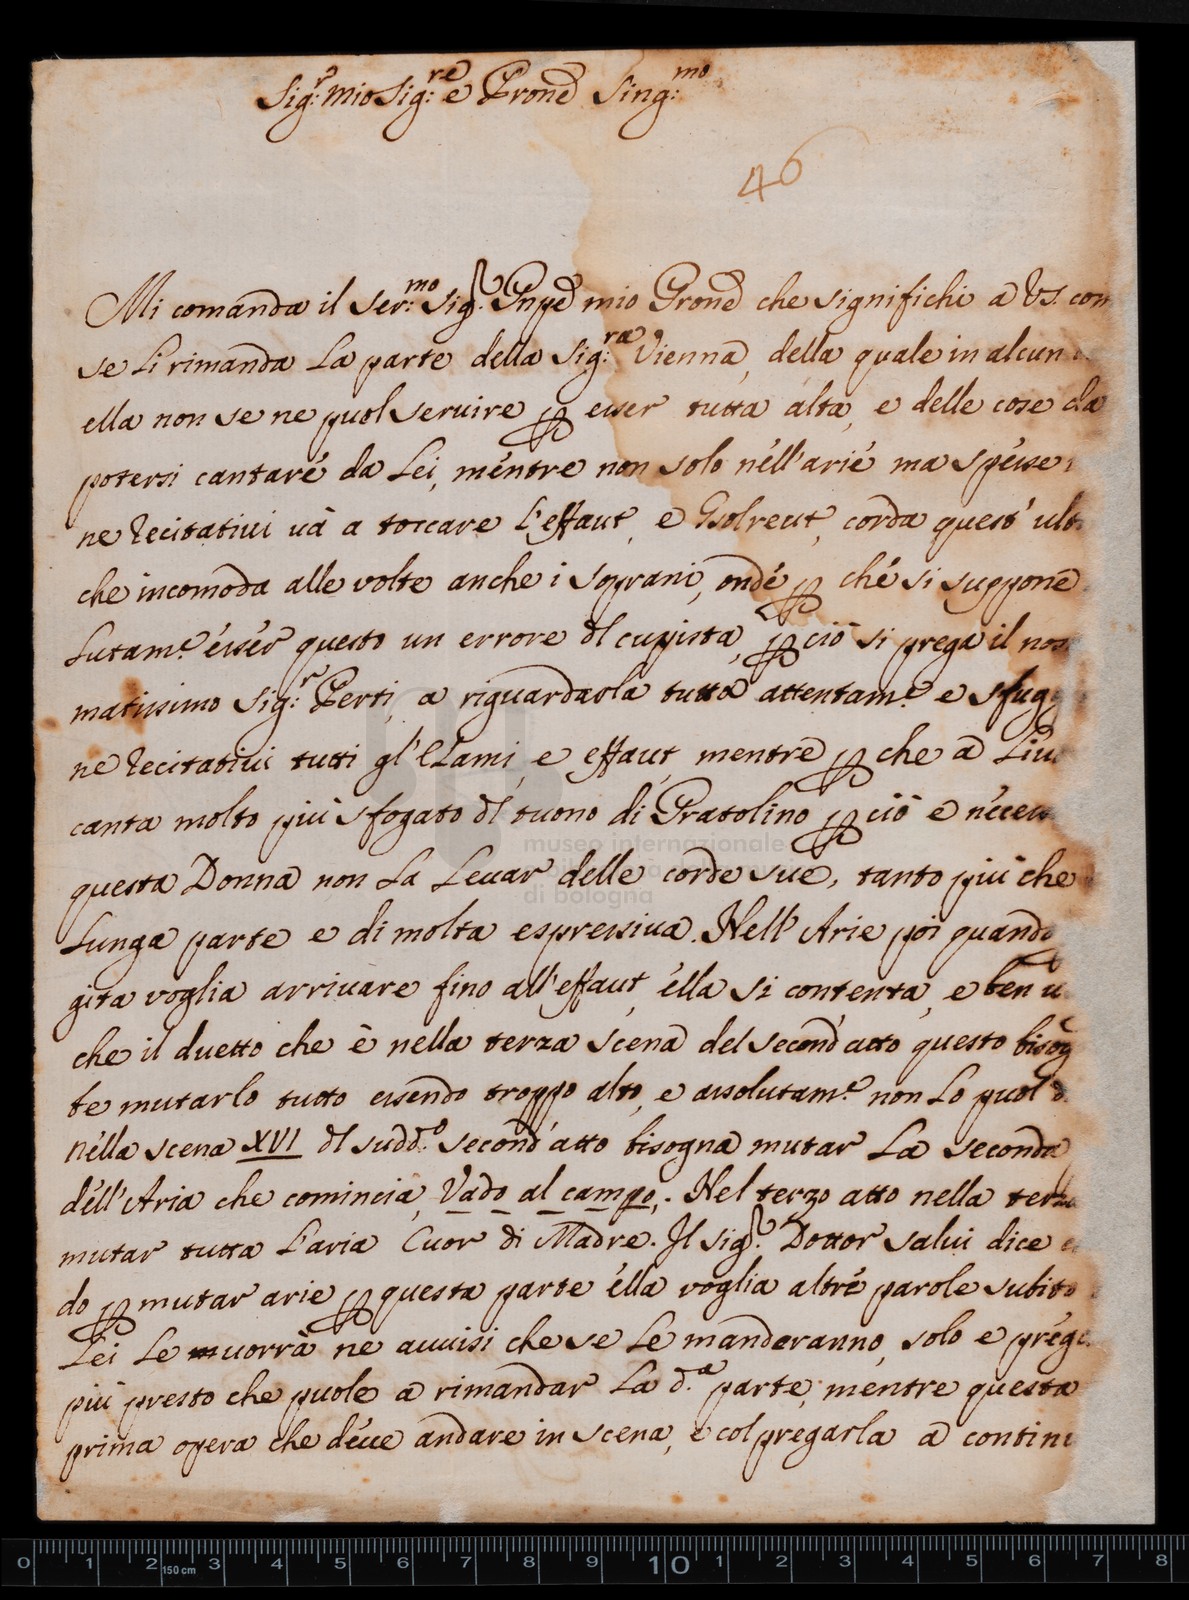 Sig:r mio Sig:re e Prone Sing:mo
46
Mi comanda il Ser:mo Sig:r Pnpe mio Prone che significhi a VS. com
se li rimanda la parte della Sig:ra Vienna, della quale in alcun
ella non se ne puol seruire p esser tutta alta, e delle cose da
potersi cantare da Lei, mentre non solo nell'arie ma spesse
ne Recitatiui uà a toccare l'effaut, e Gsolreut, corda quest' ult
che incomoda alle volte anche i soprani, onde p che si suppone
lutam.e esser questo un errore dl cupista, p ciò si prega il nos
matissimo Sig:r Perti, a riguardarla tutta attentam.e e sfugg
ne Recitatiui tutti gl'ELami, e effaut, mentre p che a Liu
canta molto più sfogato dl tuono di Pratolino p ciò e necess
questa Donna non la leuar delle corde sue, tanto più che
lunga parte e di molta espressiua. Nell' Arie poi quando
gita voglia arriuare fino all'effaut, ella si contenta, e ben u
che il duetto che è nella terza scena del second'atto questo bisog
te mutarlo tutto essendo troppo alto, e assolutam.e non lo puol
nella scena XVI dl sudd.o second'atto bisogna mutar la seconda
dell'Aria che comincia, Vado al campo,. Nel terzo atto nella terza
mutar tutta l'aria Cuor di Madre. Il Sig:r Dottor Salui dice
do p mutar arie p questa parte ella voglia altre parole subito
Lei le uorrà ne auuisi che se le manderanno, solo e prega
più presto che puole a rimandar la d.a parte, mentre questa
prima opera che deue andare in scena, e col pregarla a contin
museo internazionale
di bologna
0 1 2 3 4 5 6 7 8 9 10 1 2 3 4 5 6 7 8
150 cm